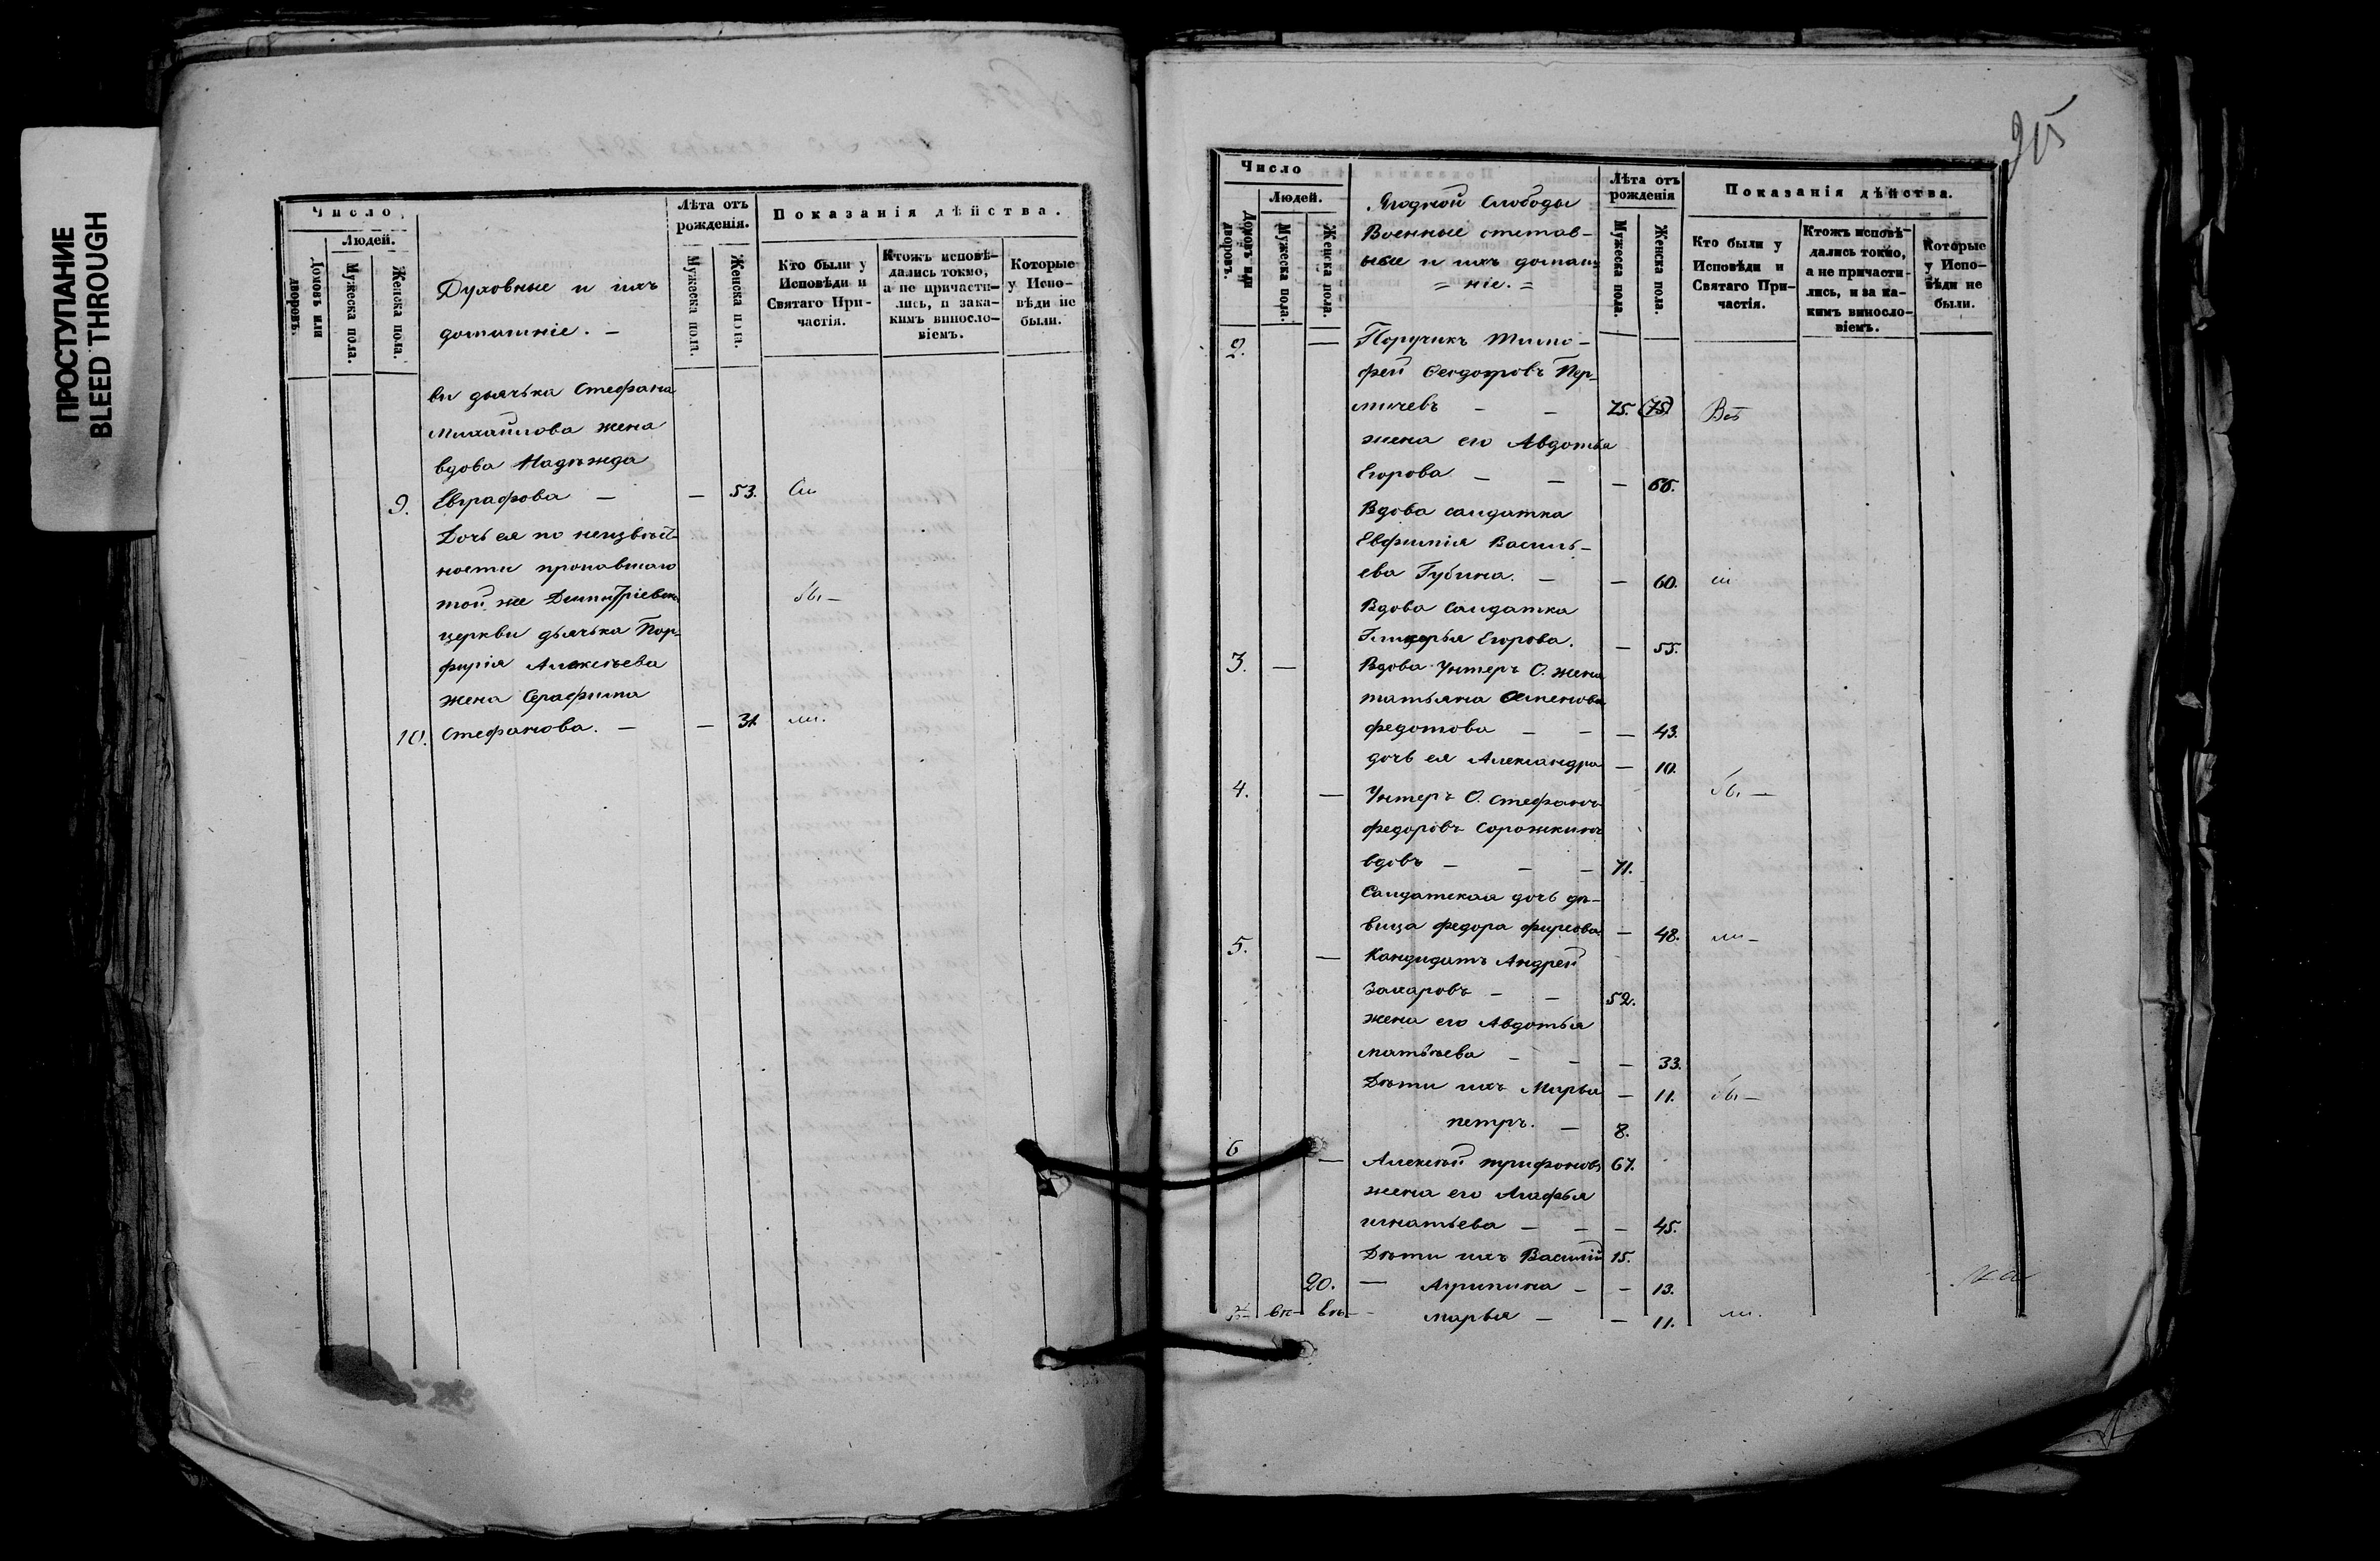 ПРОСТУПАНИЕ
BLEED THROUGH
Число
Людей.
Домовъ или дворовъ.
Мужеска пола.
Женска пола.
Духовные и ихъ
домашніе. —
Лѣта отъ рожденія.
Мужеска пола.
Женска пола.
Показанія дѣйства.
Кто были у Исповѣди и Святаго Причастія.
Ктожъ исповѣдались токмо, а не причастились, и закакимъ винословіемъ.
Которые у Исповѣди не были.
ви дьячька Стефана
Михайлова жена
вдова Надѣжда
9. Евграфова — — 53.
Дочь ея по неизвѣст-
ности пропавшаго
той же Димитріевск
церкви дьячька Пор-
фирія Алексѣева
жена Серафима
10. Стефанова. — — 31
бы —
ли.
Число
Людей.
Домовъ или дворовъ.
Мужеска пола.
Женска пола.
Ягодной Слободы
Военные отстав-
ные и ихъ домаш
= ніе. =
Лѣта отъ рожденія
Мужеска пола.
Женска пола.
Показанія дѣйства.
Кто были у Исповѣди и Святаго Причастія.
Ктожъ исповѣдались токмо, а не причастились, и за какимъ винословіемъ.
Которые у Исповѣди не были.
2. — Поручикъ Тимо-
фей Феодоровъ Пер-
мичевъ — — 75. (75)
жена его Авдотья
Егорова — — — 66.
Вдова салдатка
Евфимія Василь-
ева Губина. — — 60.
Вдова Салдатка
Гликерья Егорова. — 55.
3. — Вдова Унтеръ О. жена
татьяна Семенова
федотова — — — 43.
дочь ея Александра — 10.
4. — Унтеръ О. Стефанъ
федоровъ Сорожкинъ
вдовъ — — — 71.
бы —
Салдатская дочь дѣ-
вица федора фирсова. — 48. ли —
5. — Кандидатъ Андрей
Захаровъ — — 52.
жена его Авдотья
матвѣева — — — 33.
Дѣти ихъ Марья — 11. бы —
петръ. — 8.
6 — Алексѣй трифоновъ 67.
жена его Агафья
игнатьева — — — 45.
Дѣти ихъ Василій 15.
20. — Агрипина — — 13.
марья — — 11. ли.